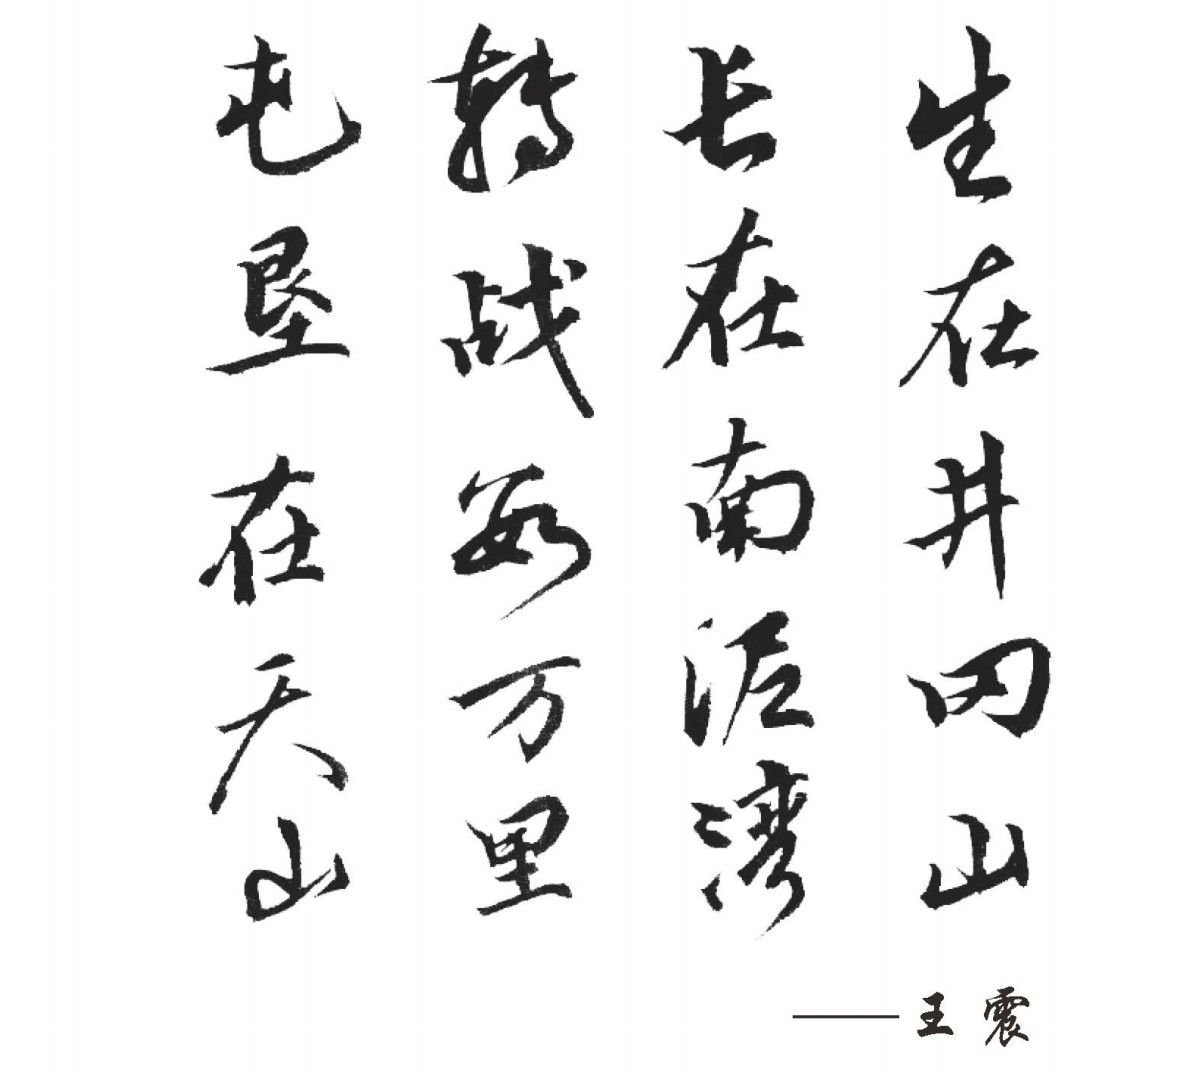 生在井冈山
长在南泥湾
转战数万里
屯垦在天山
——王震